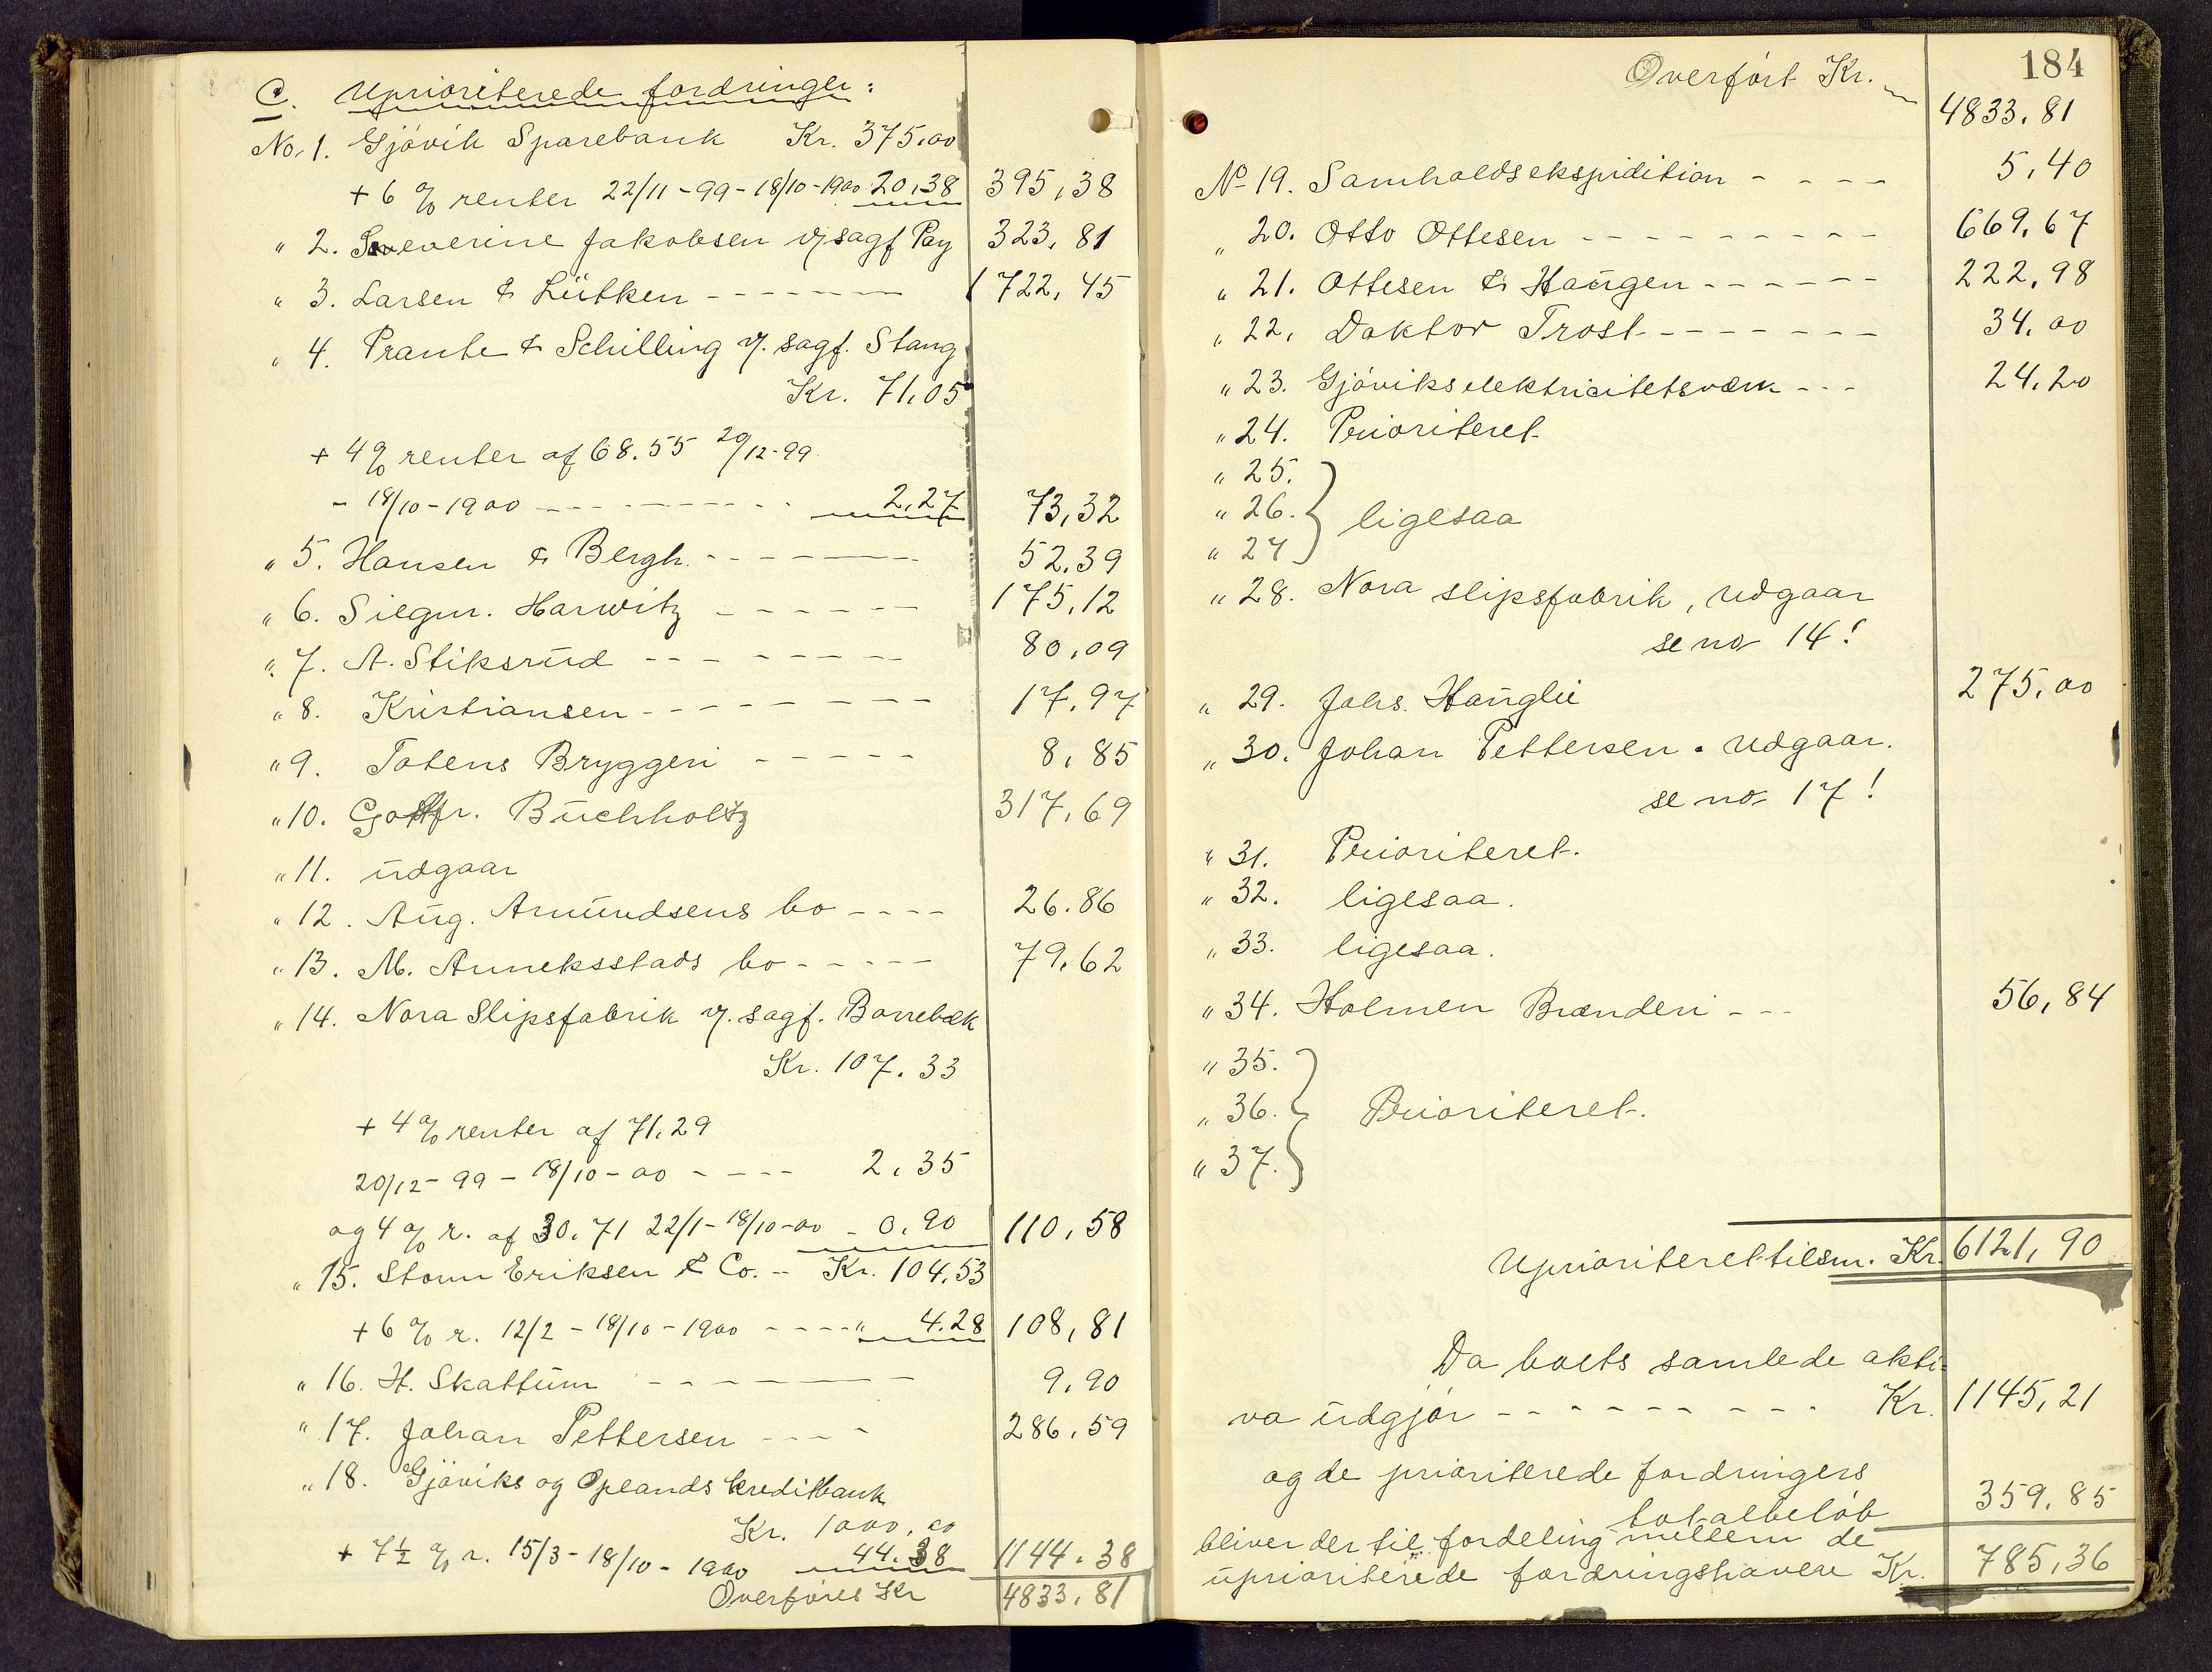 C. Uprioriterede fordringer:
No. 1. Gjövik Sparebank Kr. 375,00
+ 6 % renter 22/11-99-18/10-1900 20,38 395,38
" 2. Severine Jakobsen v/sagf Pay 323,81
" 3. Larsen & Lütken - - - - - - 1722,45
" 4. Prante & Schilling v. sagf. Stang
Kr. 71,05
+ 4 % renter af 68.55 20/12-99
- 18/10-1900 - - - - - - 2,27 73,32
" 5. Hansen & Bergh. - - - - - 52,39
" 6. Siegm. Harwitz - - - - - - 175,12
" 7. A. Stiksrud - - - - - - 80,09
" 8. Kristiansen - - - - - - - 17,97
" 9. Totens Bryggeri - - - - - 8,85
" 10. Gottfr. Buchholtz 317,69
" 11. udgaar
" 12. Aug. Amundsens bo - - - - 26.86
" 13. M. Anneksstads bo - - - - - 79,62
" 14. Nora Slipsfabrik v. sagf. Borrebæk
Kr. 107.33
+ 4 % renter af 71,29
20/12-99 - 18/10-00 - - - - 2,35
og 4 % r. af 30,71 22/1-18/10-00 - 0,90 110,58
" 15. Storm Eriksen & Co. - Kr. 104,53
+ 6 % r. 12/2 - 18/10 - 1900 - - - - " 4.28 108,81
" 16. H. Skattum - - - - - - 9,90
" 17. Johan Pettersen - - - - 286,59
" 18. Gjöviks og Oplands kreditbank
Kr. 1000,00
+ 7½ % r. 15/3-18/10-1900 44.38 1144.38
Overföres Kr 4833,81
184
Overfört Kr. 4833,81
No 19. Samholds ekspidition - - - - 5,40
" 20. Otto Ottesen - - - - - - - - - 669,67
" 21. Ottesen & Haugen - - - - - - 222,98
" 22. Doktor Trost - - - - - - - 34,00
" 23. Gjöviks elektricitetsværk - - - 24,20
" 24. Prioriteret
" 25.
" 26. } ligesaa
" 27
" 28. Nora slipsfabrik, udgaar
se no 14!
" 29. Johs. Hauglie 275,00
" 30. Johan Pettersen. udgaar.
se no 17!
" 31. Prioriteret.
" 32. ligesaa.
" 33. ligesaa.
" 34. Holmen Brænderi - - - 56,84
" 35.
" 36. } Prioriteret.
" 37.
Uprioriteret tilsm. Kr. 6121,90
Da boets samlede akti=
va udgjör - - - - - - - - - Kr. 1145,21
og de prioriterede fordringers
totalbelöb 359,85
bliver der til fordeling mellem de
uprioriterede fordringshavere Kr. 785,36